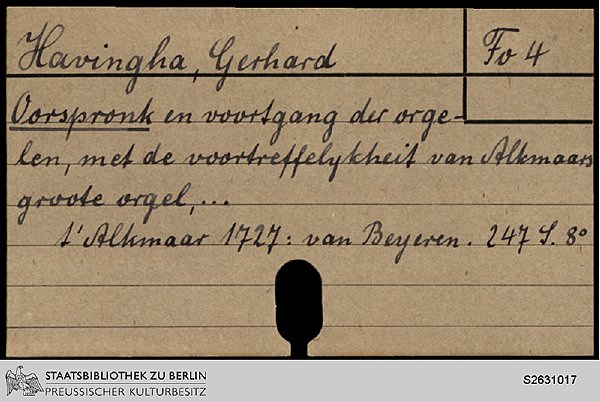 Havingha, Gerhard
Fo 4
Oorspronk en voortgang der orge-
len, met de voortreffelykheit van Alkmaars
groote orgel,...
t'Alkmaar 1727: van Beyeren. 247 S. 8°
STAATSBIBLIOTHEK ZU BERLIN
PREUSSISCHER KULTURBESITZ
S2631017